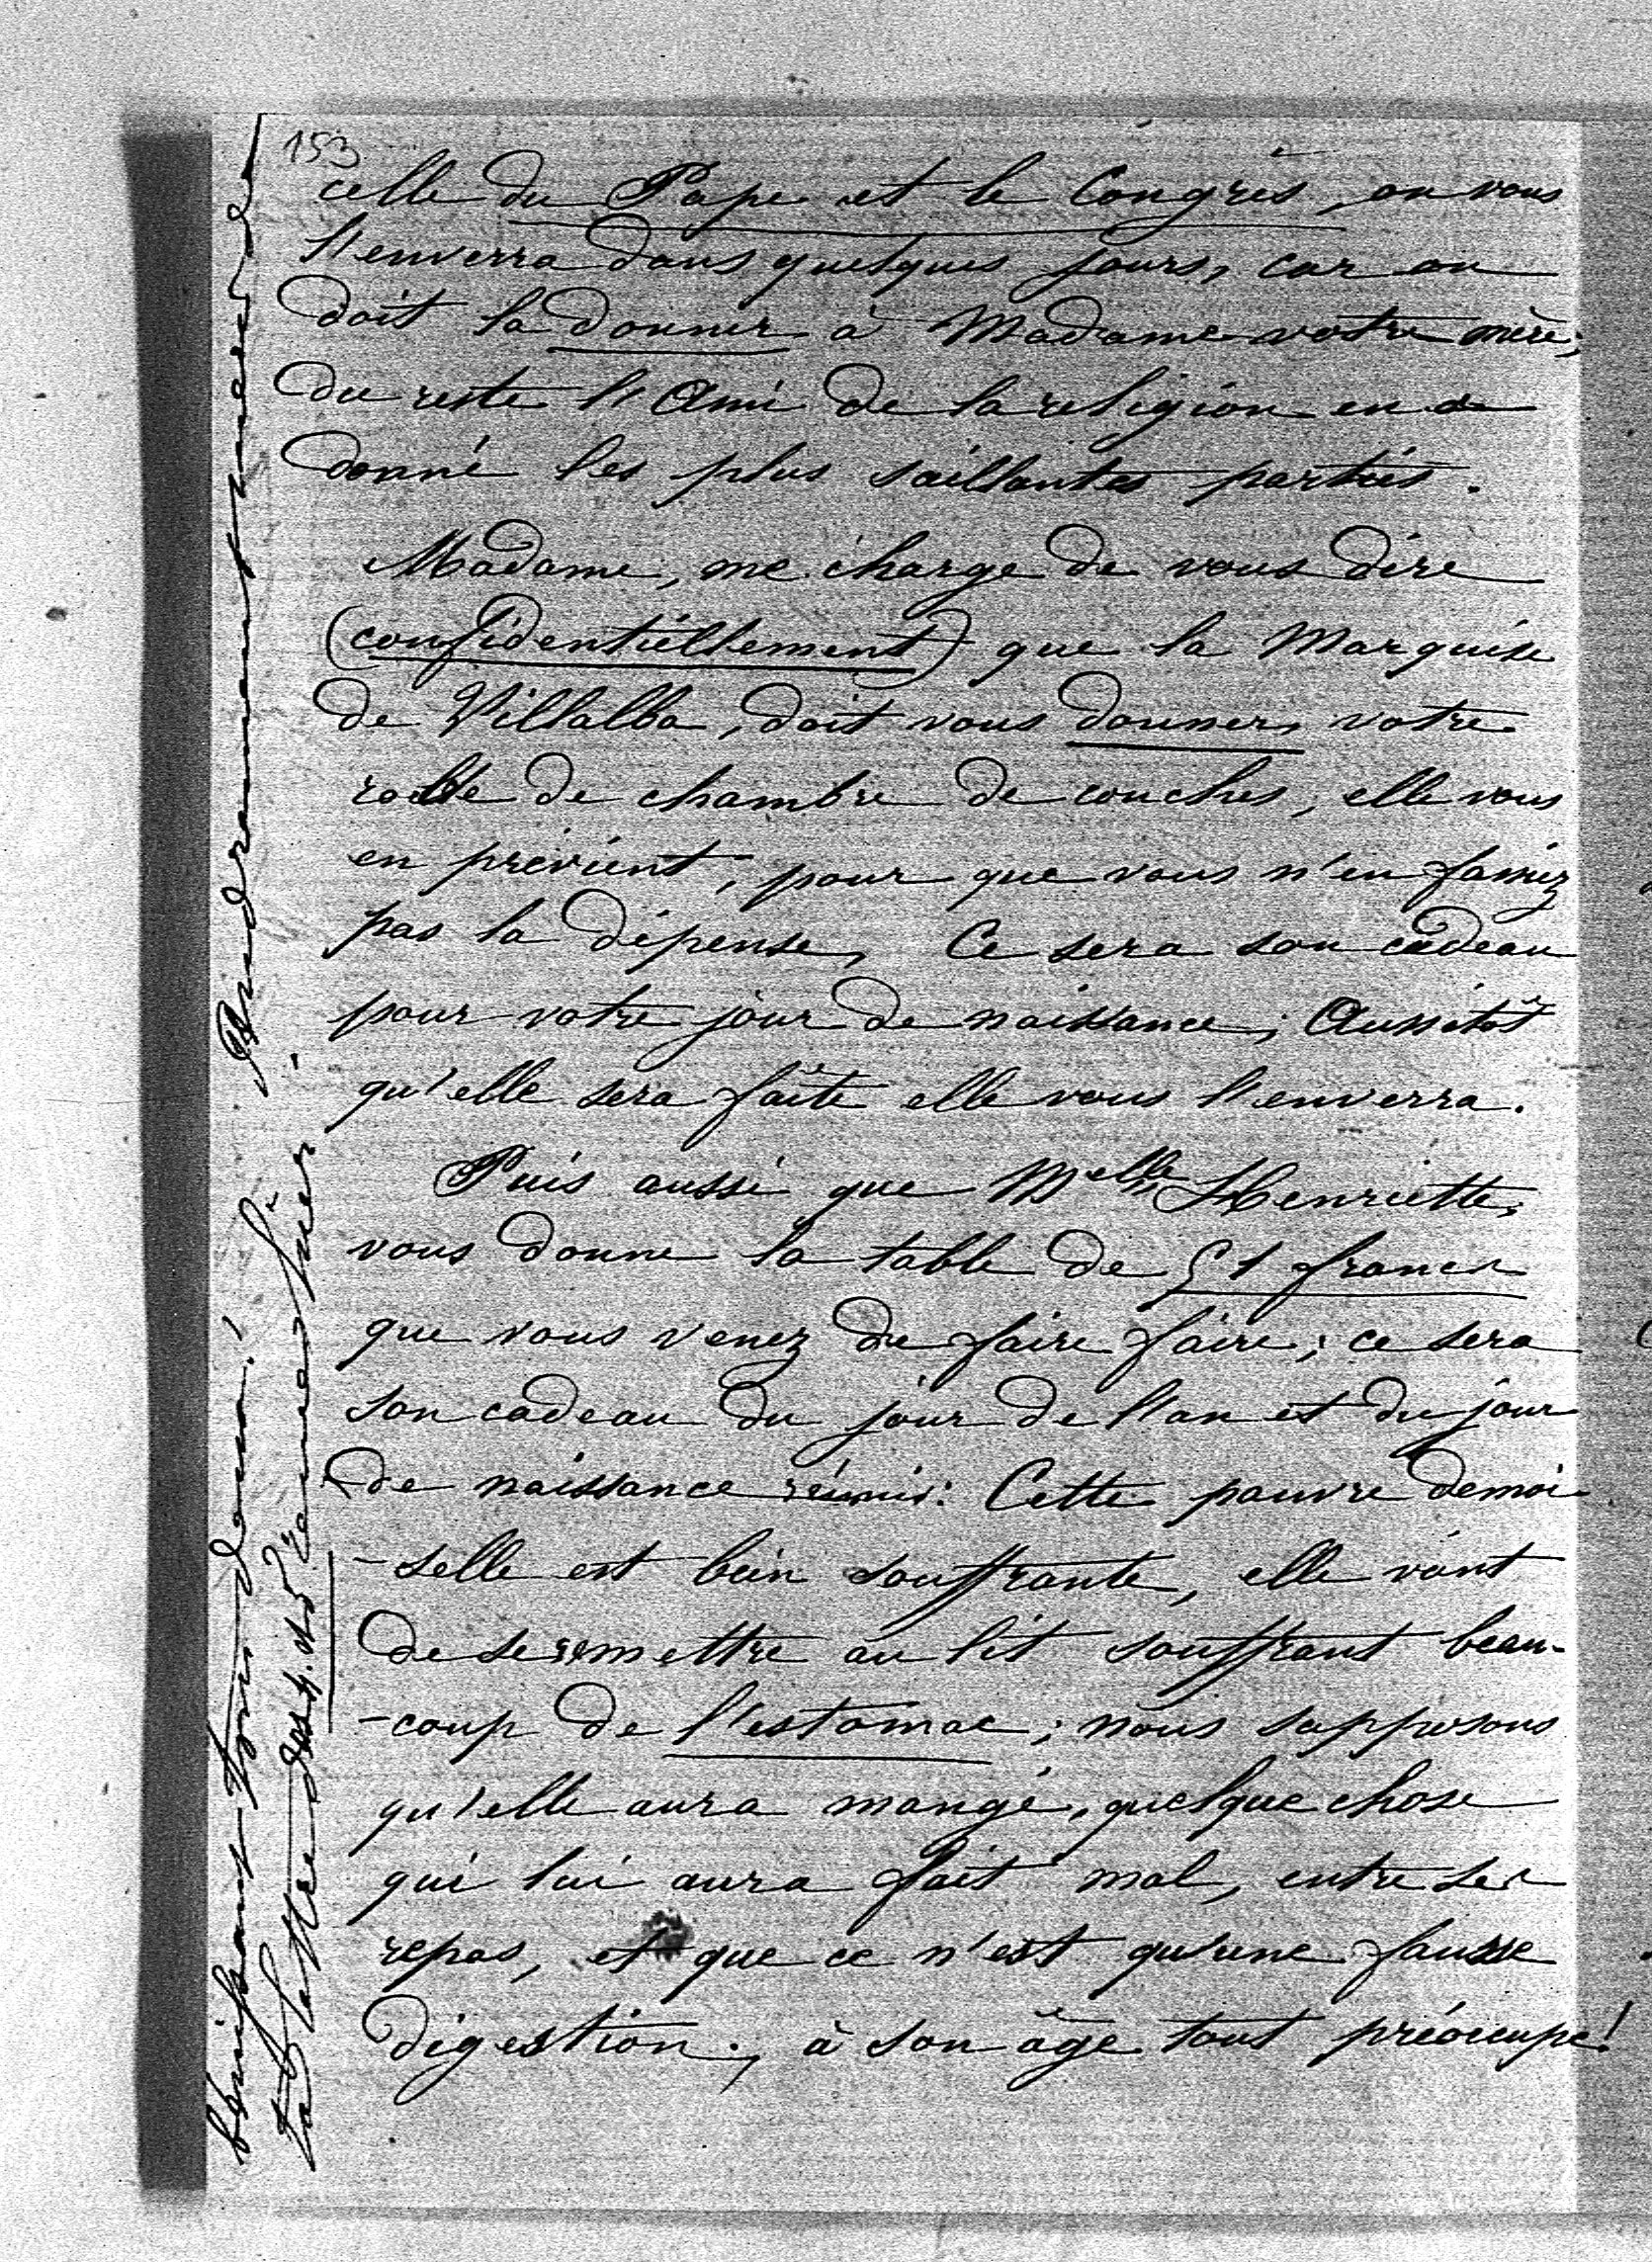 153
celle du Pape et le Congrès, on vous
l'enverra dans quelques jours, car on
doit la donner à Madame votre mère;
du reste l'Ami de la religion en a
donné les plus saillantes parties.
Madame, me charge de vous dire
(confidentiellement) que la Marquise
de Villalba, doit vous donner, votre
robe de chambre de couches, elle vous
en prévient, pour que vous n'en fassiez
pas la dépense, Ce sera son cadeau
pour votre jour de naissance; Aussitôt
qu'elle sera faîte elle vous l'enverra.
Puis aussi que Melle Henriette,
vous donne la table de 51 francs
que vous venez de faire faire; ce sera
son cadeau du jour de l'an et du jour
de naissance réunis: Cette pauvre demoi
-selle est bien souffrante, elle vient
de se remettre au lit souffrant beau-
-coup de l'estomac; nous supposons
qu'elle aura mangé, quelque chose
qui lui aura fait mal, entre ses
repas, et que ce n'est qu'une fausse
digestion; à son âge tout préoccupe!